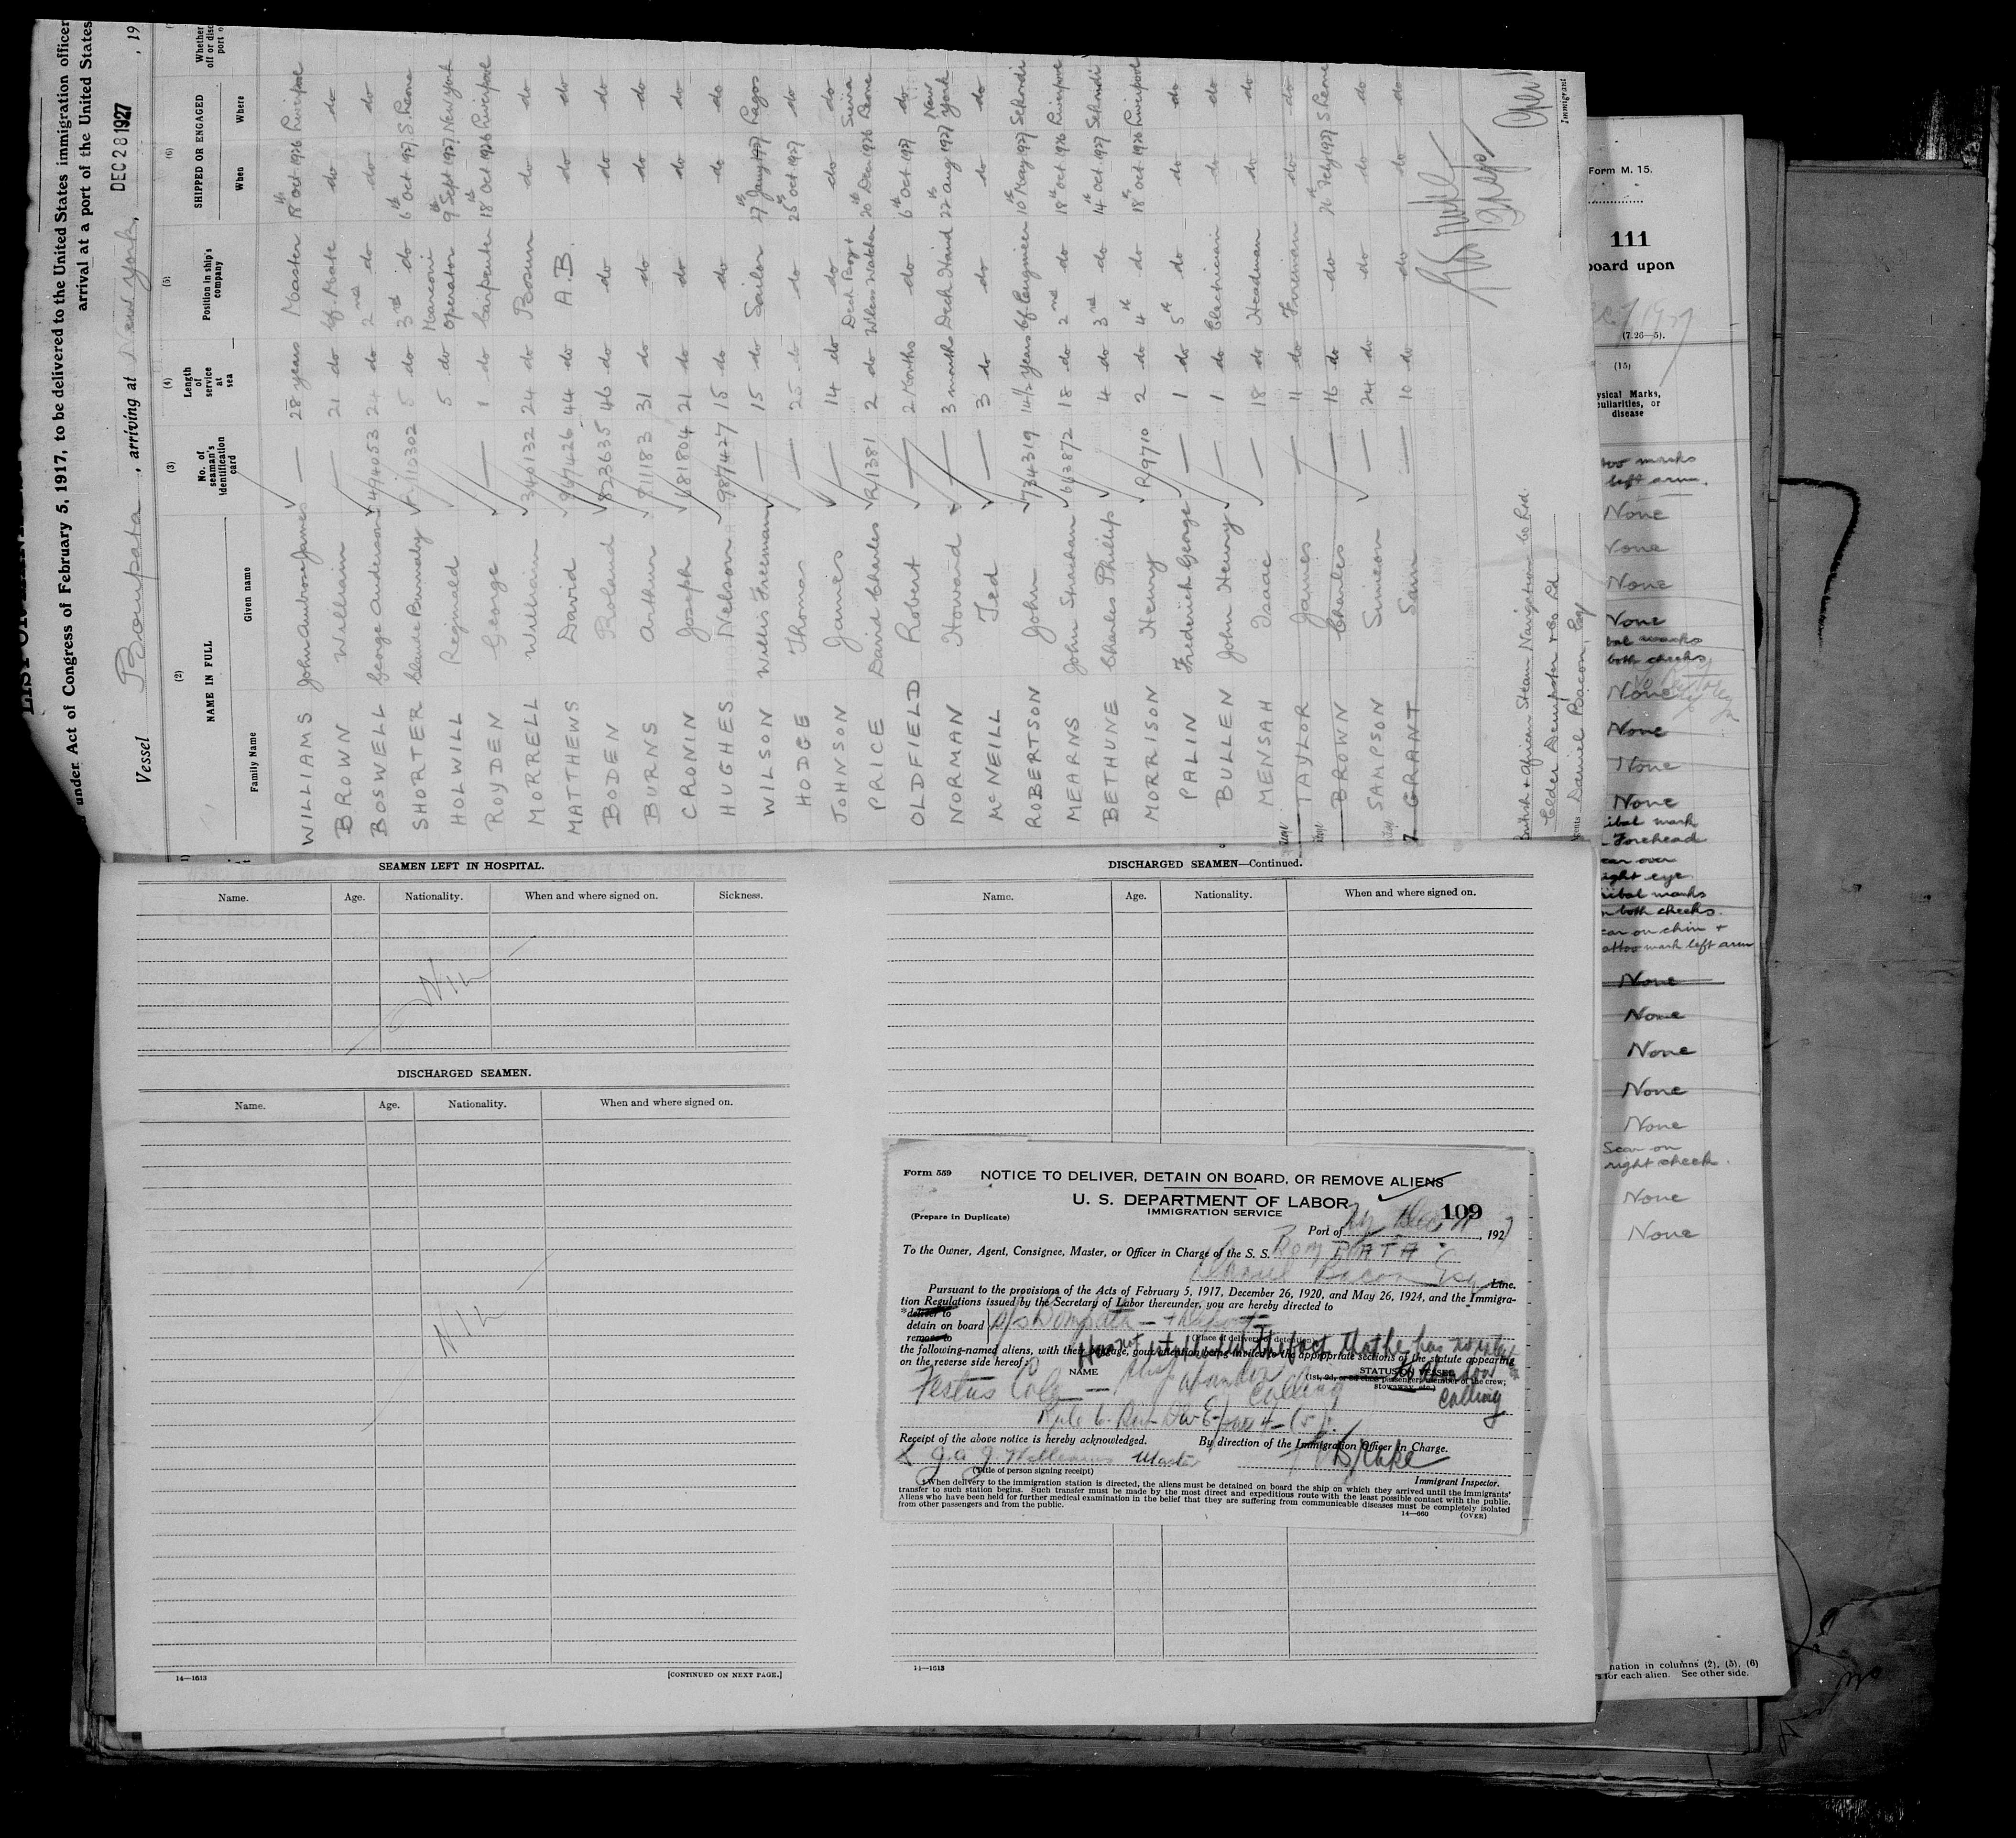 under Act of Congress of February 5, 1917, to be delivered to the United States immigration officer
arrival at a port of the United States
Vessel Bompata, arriving at New York, DEC 28 1927, 19
(2) (3) (4) (5) (6)
NAME IN FULL
Family Name Given name
No. of seaman's identification card
Length of service at sea
Position in ship's company
SHIPPED OR ENGAGED
When Where
Whether
WILLIAMS John Ambrose James — 28 years Master 18th Oct 1926 Liverpool
BROWN William — 21 do Cf. Mate do do
BOSWELL George Anderson 494053 24 do 2nd do do do
SHORTER Claude Burnaby R.110302 5 do 3rd do 6th Oct 1927 S. Leone
HOLWILL Reginald 5 do Marconi Operator 9th Sept 1927 New York
ROYDEN George — 1 do Carpenter 18th Oct 1926 Liverpool
MORRELL William 340132 24 do Bosun do do
MATTHEWS David 967426 44 do A.B. do do
BODEN Roland 823635 46 do do do do
BURNS Arthur 811183 31 do do do do
CRONIN Joseph 681804 21 do do do do
HUGHES Nelson 987427 15 do do do do
WILSON Willis Freeman — 15 do Sailor 27th Jany 1927 Lagos
HODGE Thomas — 25 do do 25th Oct 1927 do
JOHNSON James — 14 do do do do
PRICE David Charles R/1381 2 do Deck Boy & Wless Watcher 20th Dec 1926 Sierra Leone
OLDFIELD Robert — 2 Months do 6th Oct 1927 do
NORMAN Howard — 3 months Deck Hand 22nd Aug 1927 New York
McNEILL Ted — 3 do do do do
ROBERTSON John 734319 14½ years Cf Engineer 10th May 1927 Sekondi
MEARNS John Strachan 613872 18 do 2nd do 18th Oct 1926 Liverpool
BETHUNE Charles Phillips 4 do 3rd do 14th Oct 1927 Sekondi
MORRISON Henry R.9710 2 do 4th do 18th Oct 1926 Liverpool
PALIN Frederick George — 1 do 5th do do do
BULLEN John Henry — 1 do Electrician do do
MENSAH Isaac — 18 do Headman do do
TAYLOR James — 11 do Fireman do do
BROWN Charles — 16 do do 26th Feby 1927 S Leone
SAMPSON Simeon — 24 do do do do
GRANT Sam — 10 do do do do
British & African Steam Navigation Co Ltd.
Elder Dempster & Co Ltd
Agents Daniel Bacon, Esq
Immigrant
Form M. 15.
111
board upon
(7.26—5).
(15)
ysical Marks,
culiarities, or
disease
too marks
left arm.
None
None
None
None
bal marks
both cheeks
None
None
None
None
ibal mark
Forehead
car over
ight eye
ribal marks
n both cheeks.
car on chin &
attoo mark left arm
None
None
None
None
None
Scar on
right cheek.
None
None
nation in columns (2), (5), (6)
s for each alien. See other side.
SEAMEN LEFT IN HOSPITAL.
Name. Age. Nationality. When and where signed on. Sickness.
NIL
DISCHARGED SEAMEN.
Name. Age. Nationality. When and where signed on.
NIL
14—1613 [CONTINUED ON NEXT PAGE.]
DISCHARGED SEAMEN—Continued.
Name. Age. Nationality. When and where signed on.
Form 559 NOTICE TO DELIVER, DETAIN ON BOARD, OR REMOVE ALIENS
U. S. DEPARTMENT OF LABOR
IMMIGRATION SERVICE
(Prepare in Duplicate) 109
Port of NY Dec, 1927
To the Owner, Agent, Consignee, Master, or Officer in Charge of the S. S. Bompata
Daniel Bacon Esq Line.
Pursuant to the provisions of the Acts of February 5, 1917, December 26, 1920, and May 26, 1924, and the Immigra-
tion Regulations issued by the Secretary of Labor thereunder, you are hereby directed to
*deliver to
detain on board s/s Bompata — & deport
remove to (Place of delivery or detention)
the following-named aliens, with their baggage, your attention being invited to the appropriate sections of the statute appearing
on the reverse side hereof:
the fact that he has
NAME STATUS ON VESSEL
(1st, 2d, or 3d class passenger; member of the crew; stowaway, etc.)
Festus Cole — calling
calling
Rule 6
Receipt of the above notice is hereby acknowledged. By direction of the Immigration Officer in Charge.
J. A. J. Williams Master Drake
(Title of person signing receipt) Immigrant Inspector.
†When delivery to the immigration station is directed, the aliens must be detained on board the ship on which they arrived until the immigrants'
transfer to such station begins. Such transfer must be made by the most direct and expeditious route with the least possible contact with the public.
Aliens who have been held for further medical examination in the belief that they are suffering from communicable diseases must be completely isolated
from other passengers and from the public.
14—660 (OVER)
14—1613